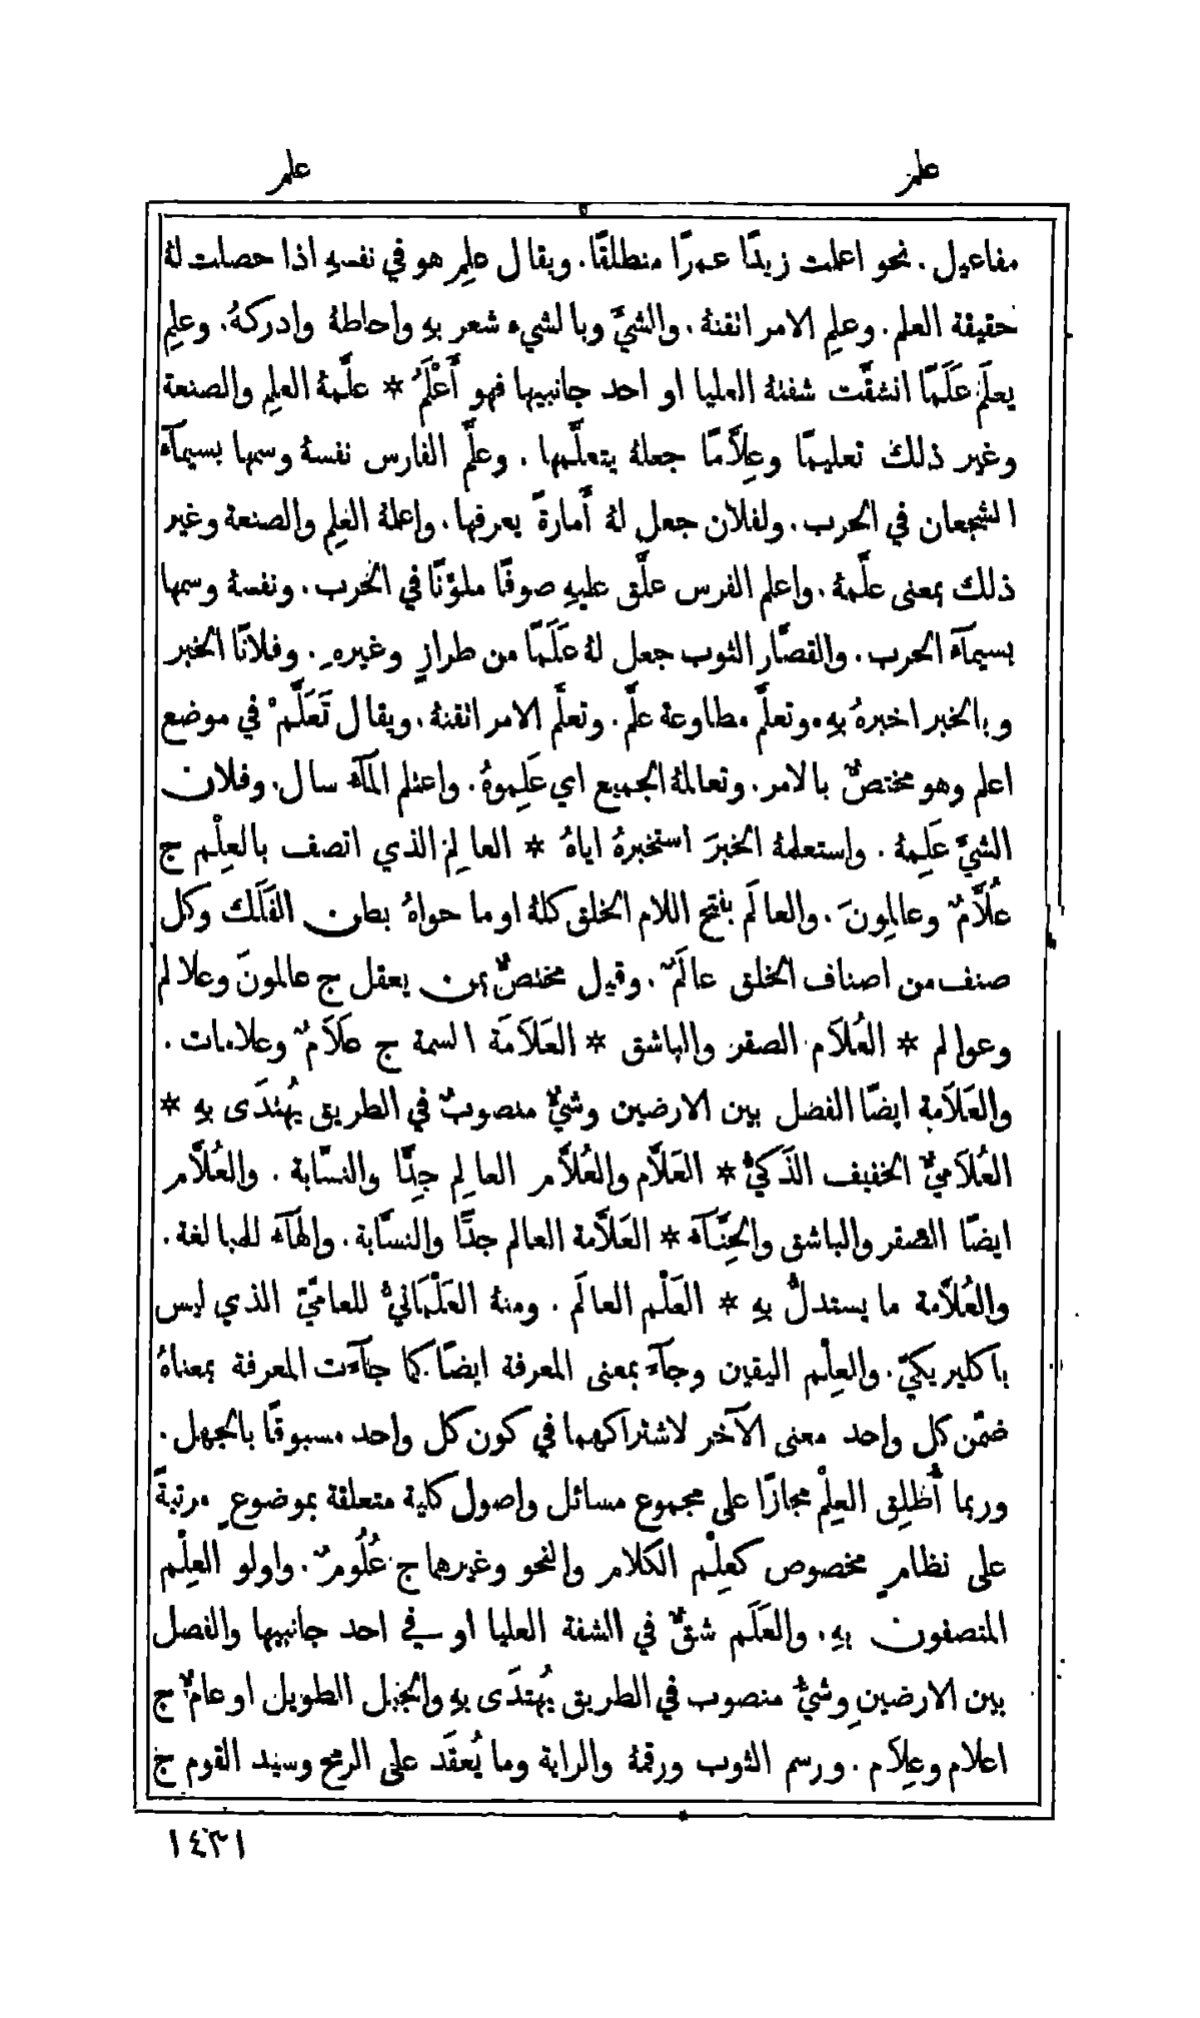 علم علم
مفاعيل. نحو اعلمت زيدًا عمرًا منطلقًا. ويقال علِم هو في نفسهِ اذا حصلت لهُ
حقيقة العلم. وعلِم الامر اتقنهُ. والشيَّ وبالشيء شعر بهِ واحاطهُ وادركهُ. وعلِم
يعلَم عَلَمًا انشقَّت شفتهُ العليا او احد جانبيها فهو أَعْلَمُ * علَّمهُ العلِم والصنعة
وغير ذلك تعليمًا وعِلاَّمًا جعلهُ يتعلَّمها. وعلَّم الفارس نفسهُ وسمها بسيمآء
الشجعان في الحرب. ولفلان جعل لهُ أَمارةً يعرفها. واعلمهُ العِلم والصنعة وغير
ذلك بمعنى علَّمهُ. واعلم الفرس علَّق عليهِ صوفًا ملوّنًا في الحرب. ونفسهُ وسمها
بسيمآء الحرب. والقصَّار الثوب جعل لهُ عَلَمًا من طرازٍ وغيرهِ. وفلانًا الخبر
وبالخبر اخبرهُ بهِ. وتعلَّم مطاوعة علَّم. وتعلَّم الامر اتقنهُ. ويقال تَعَلَّمْ في موضع
اعلم وهو مختصٌّ بالامر. وتعالمهُ الجميع اي عَلِموهُ. واعتلم المآء سال. وفلان
الشيَّ عَلِمهُ. واستعلمهُ الخبرَ استخبرهُ اياهُ * العالِم الذي اتصف بالعِلْم ج
عُلَّامٌ وعالِمونَ. والعالَم بفتح اللام الخلق كلهُ او ما حواهُ بطن الفَلَك وكل
صنف من اصناف الخلق عالَمٌ. وقيل مختصٌّ بمن يعقل ج عالمونَ وعلالم
وعوالم * العُلاَم الصقر والباشق * العَلاَمَة السمة ج عَلاَمٌ وعلامات.
والعَلاَمة ايضًا الفصل بين الارضين وشيٌ منصوبٌ في الطريق يُهتدَى بهِ *
العُلاَميُّ الخفيف الذَكيُّ * العَلَّام والعُلاَّم العالِم جدًّا والنسَّابة. والعُلاَّم
ايضًا الصقر والباشق والحِنَّآء * العَلاَّمة العالم جدًّا والنسَّابة. والهآء للمبالغة.
والعُلاَّمة ما يستدلُّ بهِ * العَلْم العالَم. ومنهُ العَلْمَانيُّ للعاميّ الذي ليس
باكليريكيّ. والعِلْم اليقين وجآء بمعنى المعرفة ايضًا كما جآءت المعرفة بمعناهُ
ضمّن كل واحد معنى الآخر لاشتراكهما في كون كل واحد مسبوقًا بالجهل.
وربما أُطلِق العِلْم مجازًا على مجموع مسائل واصول كلية متعلقة بموضوعٍ مرتبةً
على نظامٍ مخصوص كعِلْم الكلام والنحو وغيرهما ج عُلُومٌ. واولو العِلْم
المتصفون بهِ. والعَلَم شقٌّ في الشفة العليا او في احد جانبيها والفصل
بين الارضين وشيٌ منصوب في الطريق يُهتدَى بهِ والجبل الطويل او عامٌّ ج
اعلام وعِلاَم. ورسم الثوب ورقمهُ والراية وما يُعقَد على الرمح وسيد القوم ج
١٤٣١